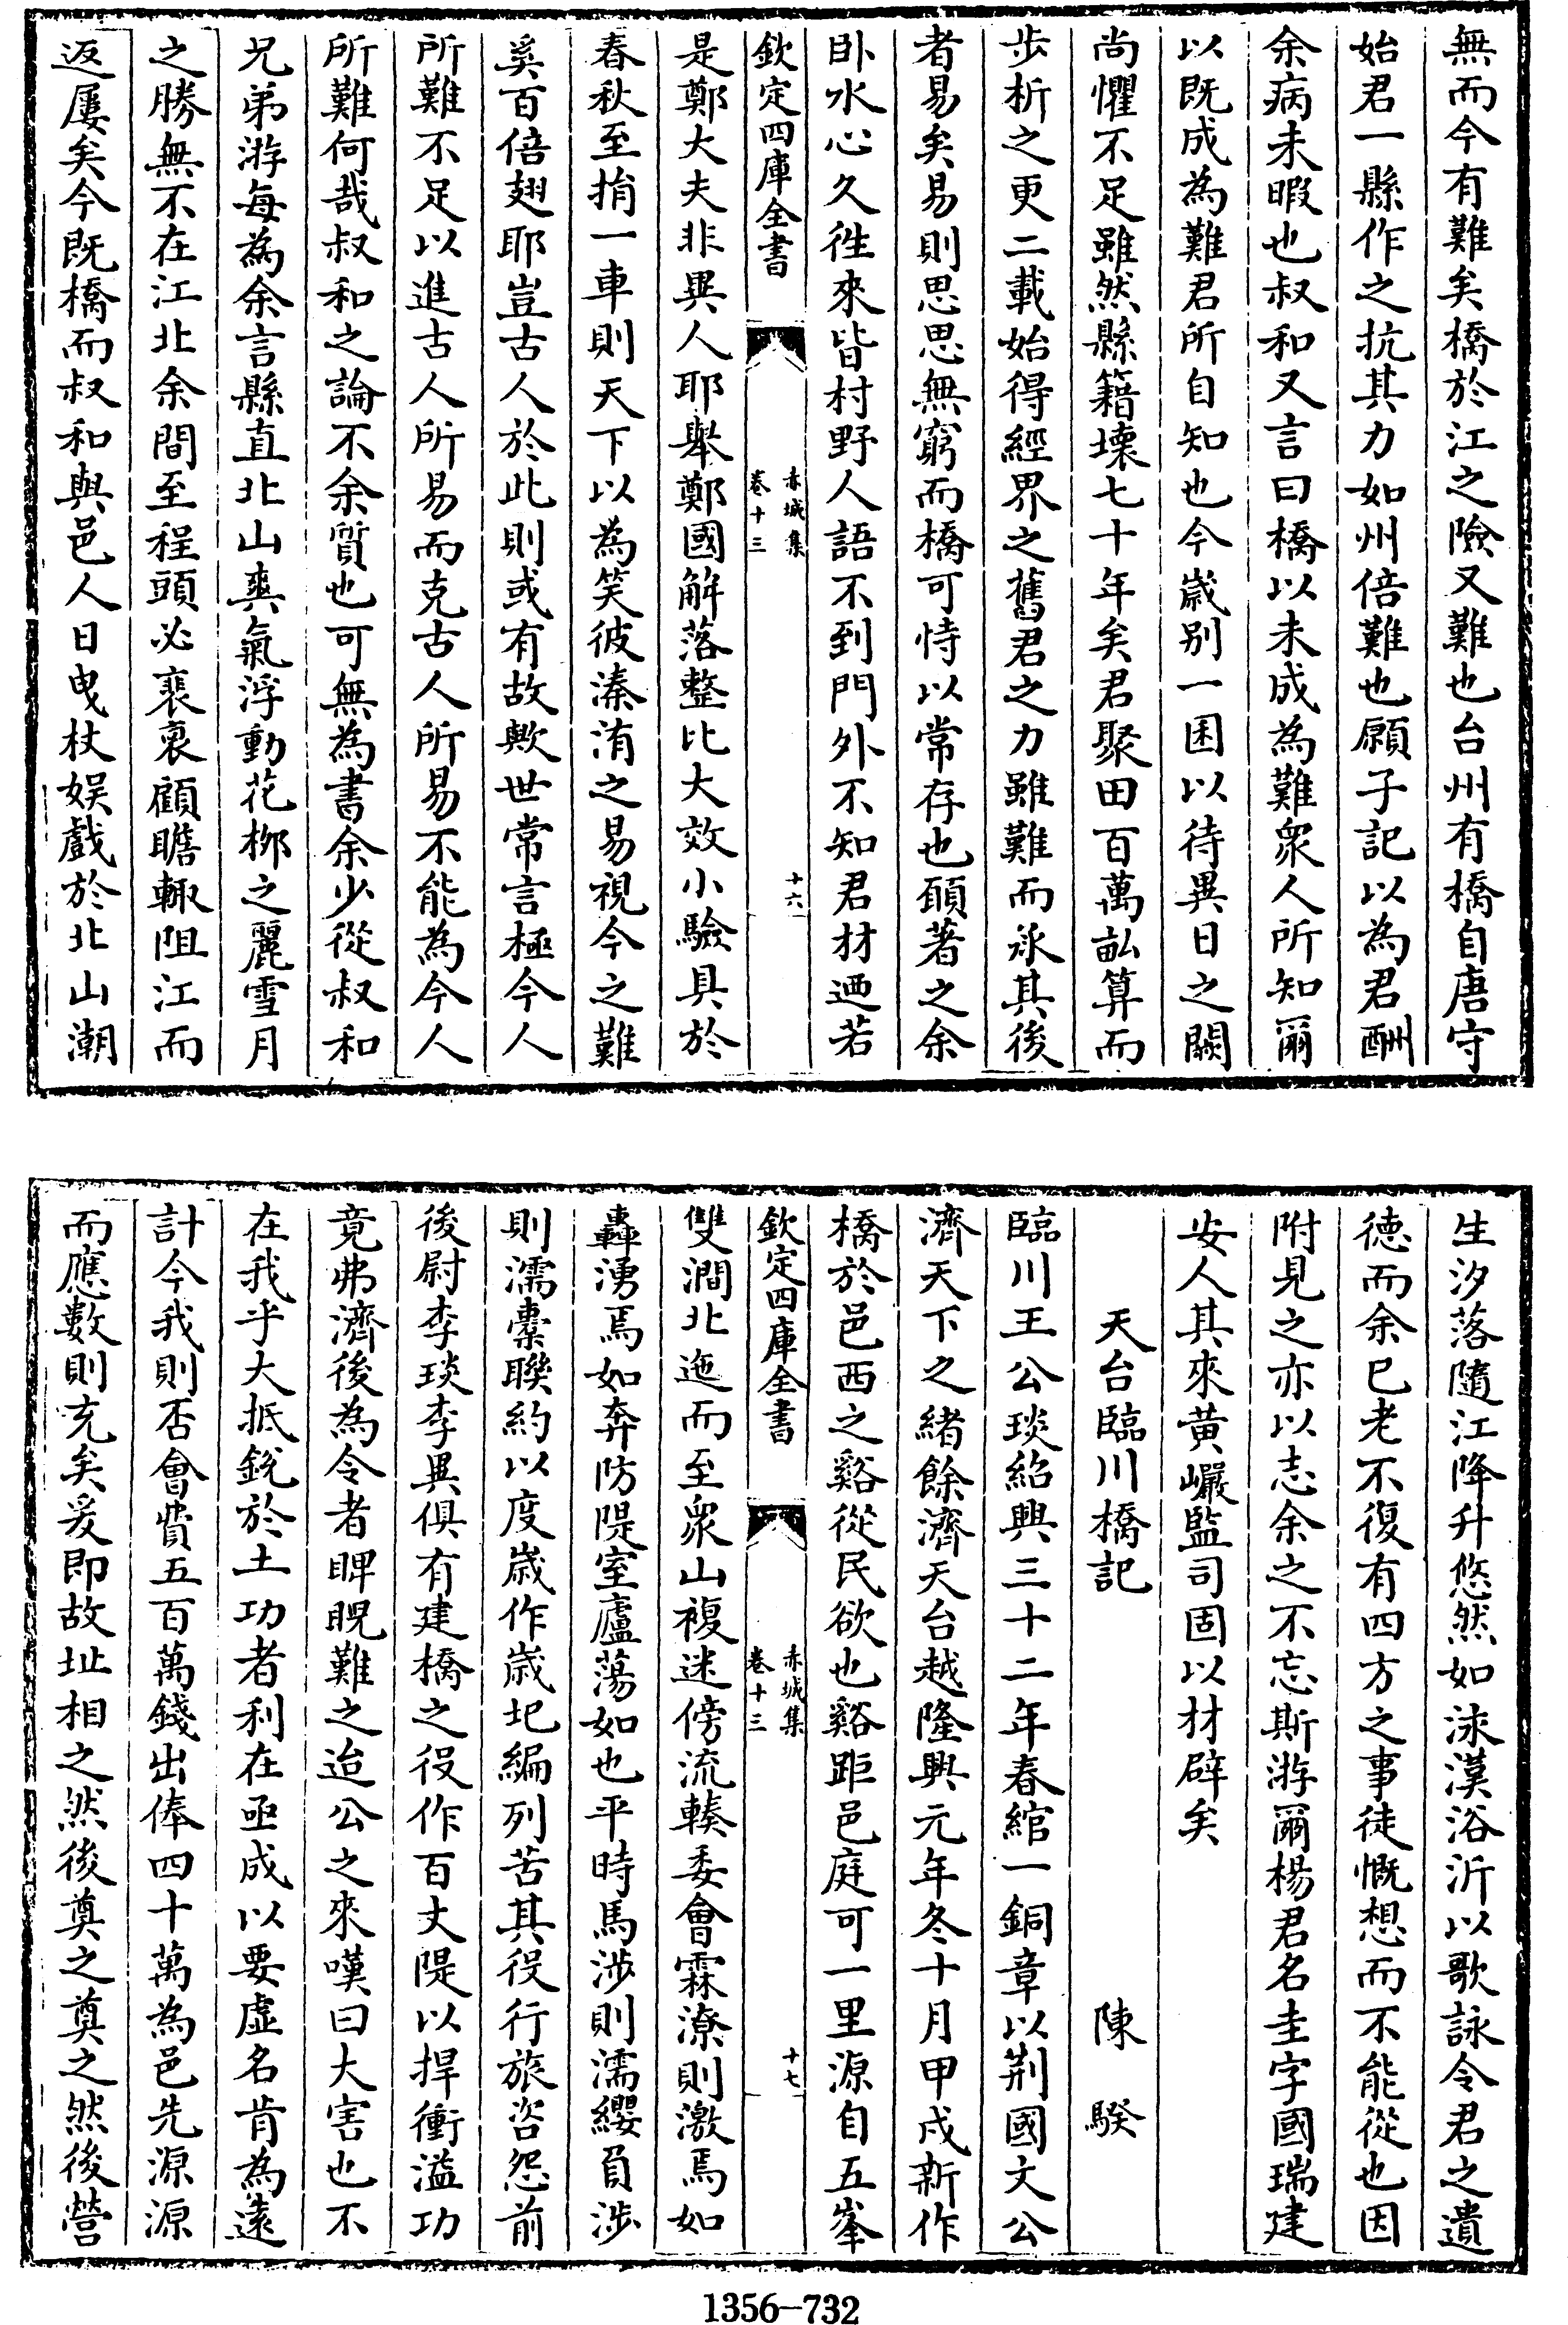 無而今有難矣橋於江之險又難也台州有橋自唐守
始君一縣作之抗其力如州倍難也願子記以為君酬
余病未暇也叔和又言曰橋以未成為難衆人所知爾
以既成為難君所自知也今歲别一困以待異日之闕
尚懼不足雖然縣籍壊七十年矣君聚田百萬畝算而
步析之更二載始得經界之舊君之力雖難而承其後
者易矣易則思思無窮而橋可恃以常存也願著之余
卧水心久徃來皆村野人語不到門外不知君材迺若
欽定四庫全書
赤城集
卷十三
十六
是鄭大夫非異人耶舉鄭國解落整比大效小驗具於
春秋至捐一車則天下以為笑彼溱洧之易視今之難
奚百倍翅耶豈古人於此則或有故歟世常言極今人
所難不足以進古人所易而克古人所易不能為今人
所難何哉叔和之論不余質也可無為書余少從叔和
兄弟游每為余言縣直北山爽氣浮動花栁之麗雪月
之勝無不在江北余間至程頭必裵褢顧瞻輙阻江而
返屢矣今既橋而叔和與邑人日曵杖娱戲於北山潮
生汐落隨江降升悠然如洙漢浴沂以歌詠令君之遺
徳而余已老不復有四方之事徒慨想而不能從也因
附見之亦以志余之不忘斯游爾楊君名圭字國瑞建
安人其來黄巖監司固以材辟矣
天台臨川橋記 陳騤
臨川王公琰紹興三十二年春綰一銅章以荆國文公
濟天下之緒餘濟天台越隆興元年冬十月甲戌新作
橋於邑西之谿從民欲也谿距邑庭可一里源自五峯
欽定四庫全書
赤城集
卷十三
十七
雙澗北迤而至衆山複迷傍流輳委會霖潦則激焉如
轟湧焉如奔防隄室廬蕩如也平時馬涉則濡纓負涉
則濡橐聯約以度歲作歲圯編列苦其役行旅咨怨前
後尉李琰李異俱有建橋之役作百丈隄以捍衝溢功
竟弗濟後為令者睥睨難之迨公之來嘆曰大害也不
在我乎大抵銳於土功者利在亟成以要虚名肯為逺
計今我則否會費五百萬錢出俸四十萬為邑先源源
而應數則充矣爰即故址相之然後奠之奠之然後營
1356-732